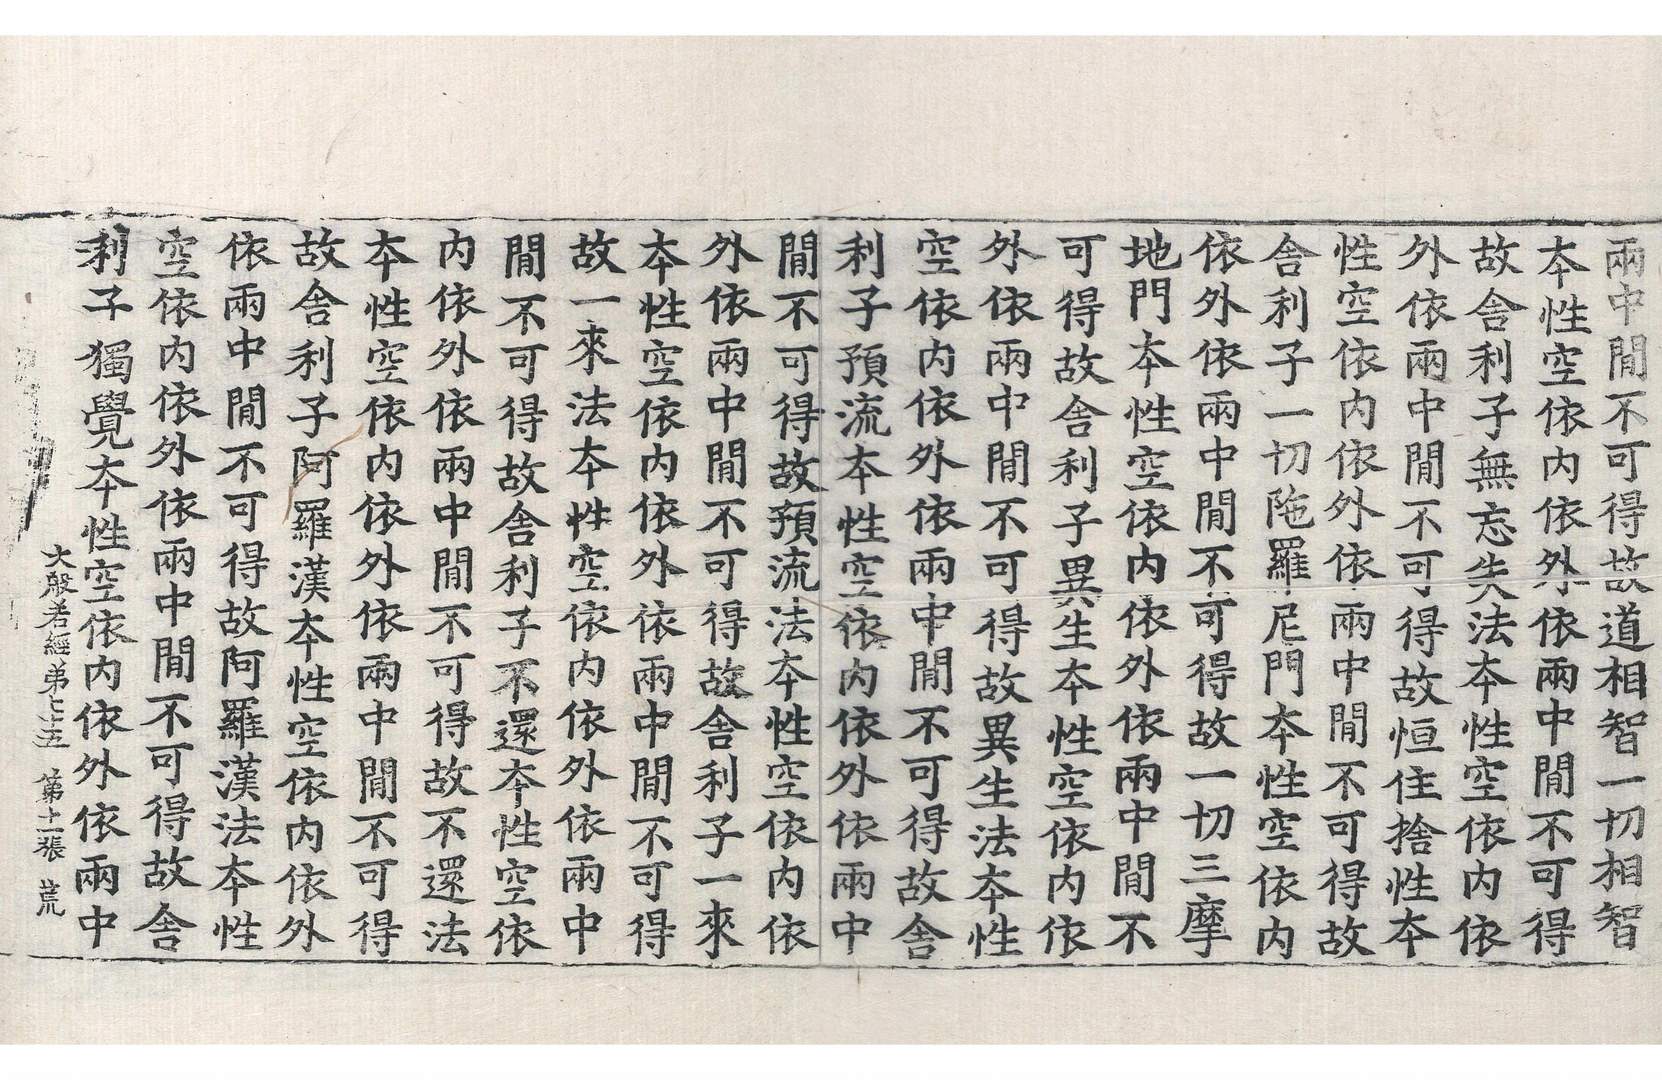 兩中閒不可得故道相智一切相智
本性空依内依外依兩中閒不可得
故舍利子無忘失法本性空依内依
外依兩中閒不可得故恒住捨性本
性空依内依外依兩中閒不可得故
舍利子一切陁羅尼門本性空依内
依外依兩中閒不可得故一切三摩
地門本性空依内依外依兩中閒不
可得故舍利子異生本性空依内依
外依兩中閒不可得故異生法本性
空依内依外依兩中閒不可得故舍
利子預流本性空依内依外依兩中
閒不可得故預流法本性空依内依
外依兩中閒不可得故舍利子一來
本性空依内依外依兩中閒不可得
故一來法本性空依内依外依兩中
閒不可得故舍利子不還本性空依
内依外依兩中閒不可得故不還法
本性空依内依外依兩中閒不可得
故舍利子阿羅漢本性空依内依外
依兩中閒不可得故阿羅漢法本性
空依内依外依兩中閒不可得故舍
利子獨覺本性空依内依外依兩中
大般若經第七十五 第十二張 荒